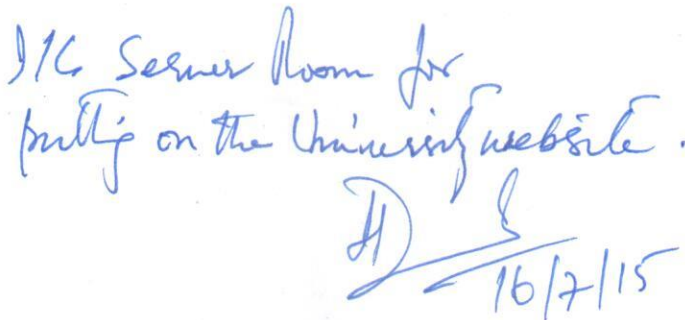 I/C Server Room for
putting on the University website.
16/7/15